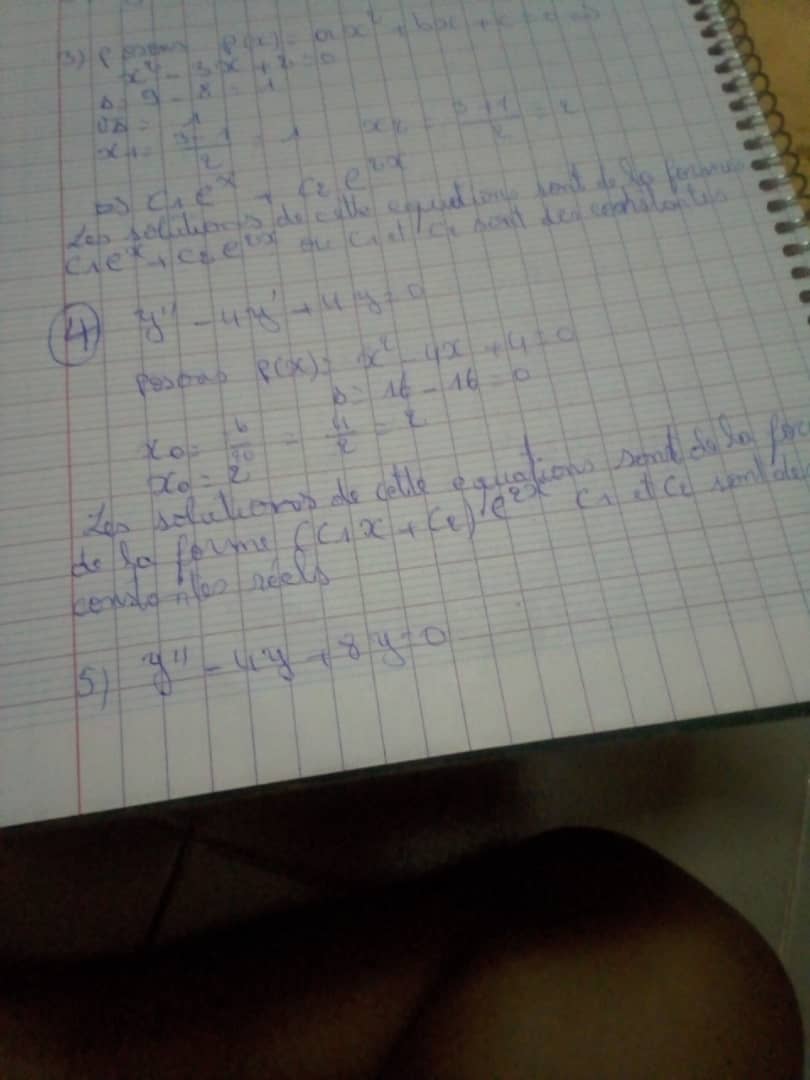 3) posons P(x) = ax² + bx + c
x² - 3x + 2 = 0
Δ = 9 - 8 = 1
√Δ = 1
x1 = 3-1/2 = 1 x2 = 3+1/2 = 2
C1e^x + C2e^2x
Les solutions de cette equations sont de la forme
C1e^x + C2e^2x ou C1 et C2 sont des constantes
4 y'' - 4y' + 4y = 0
posons P(x) = x² - 4x + 4 = 0
Δ = 16 - 16 = 0
x0 = = 4/2 = 2
x0 = 2
Les solutions de cette equations sont de la
de la forme (C1x + C2)e^2x C1 et C2 sont des
constantes réels
5) y'' - 4y + 8y = 0